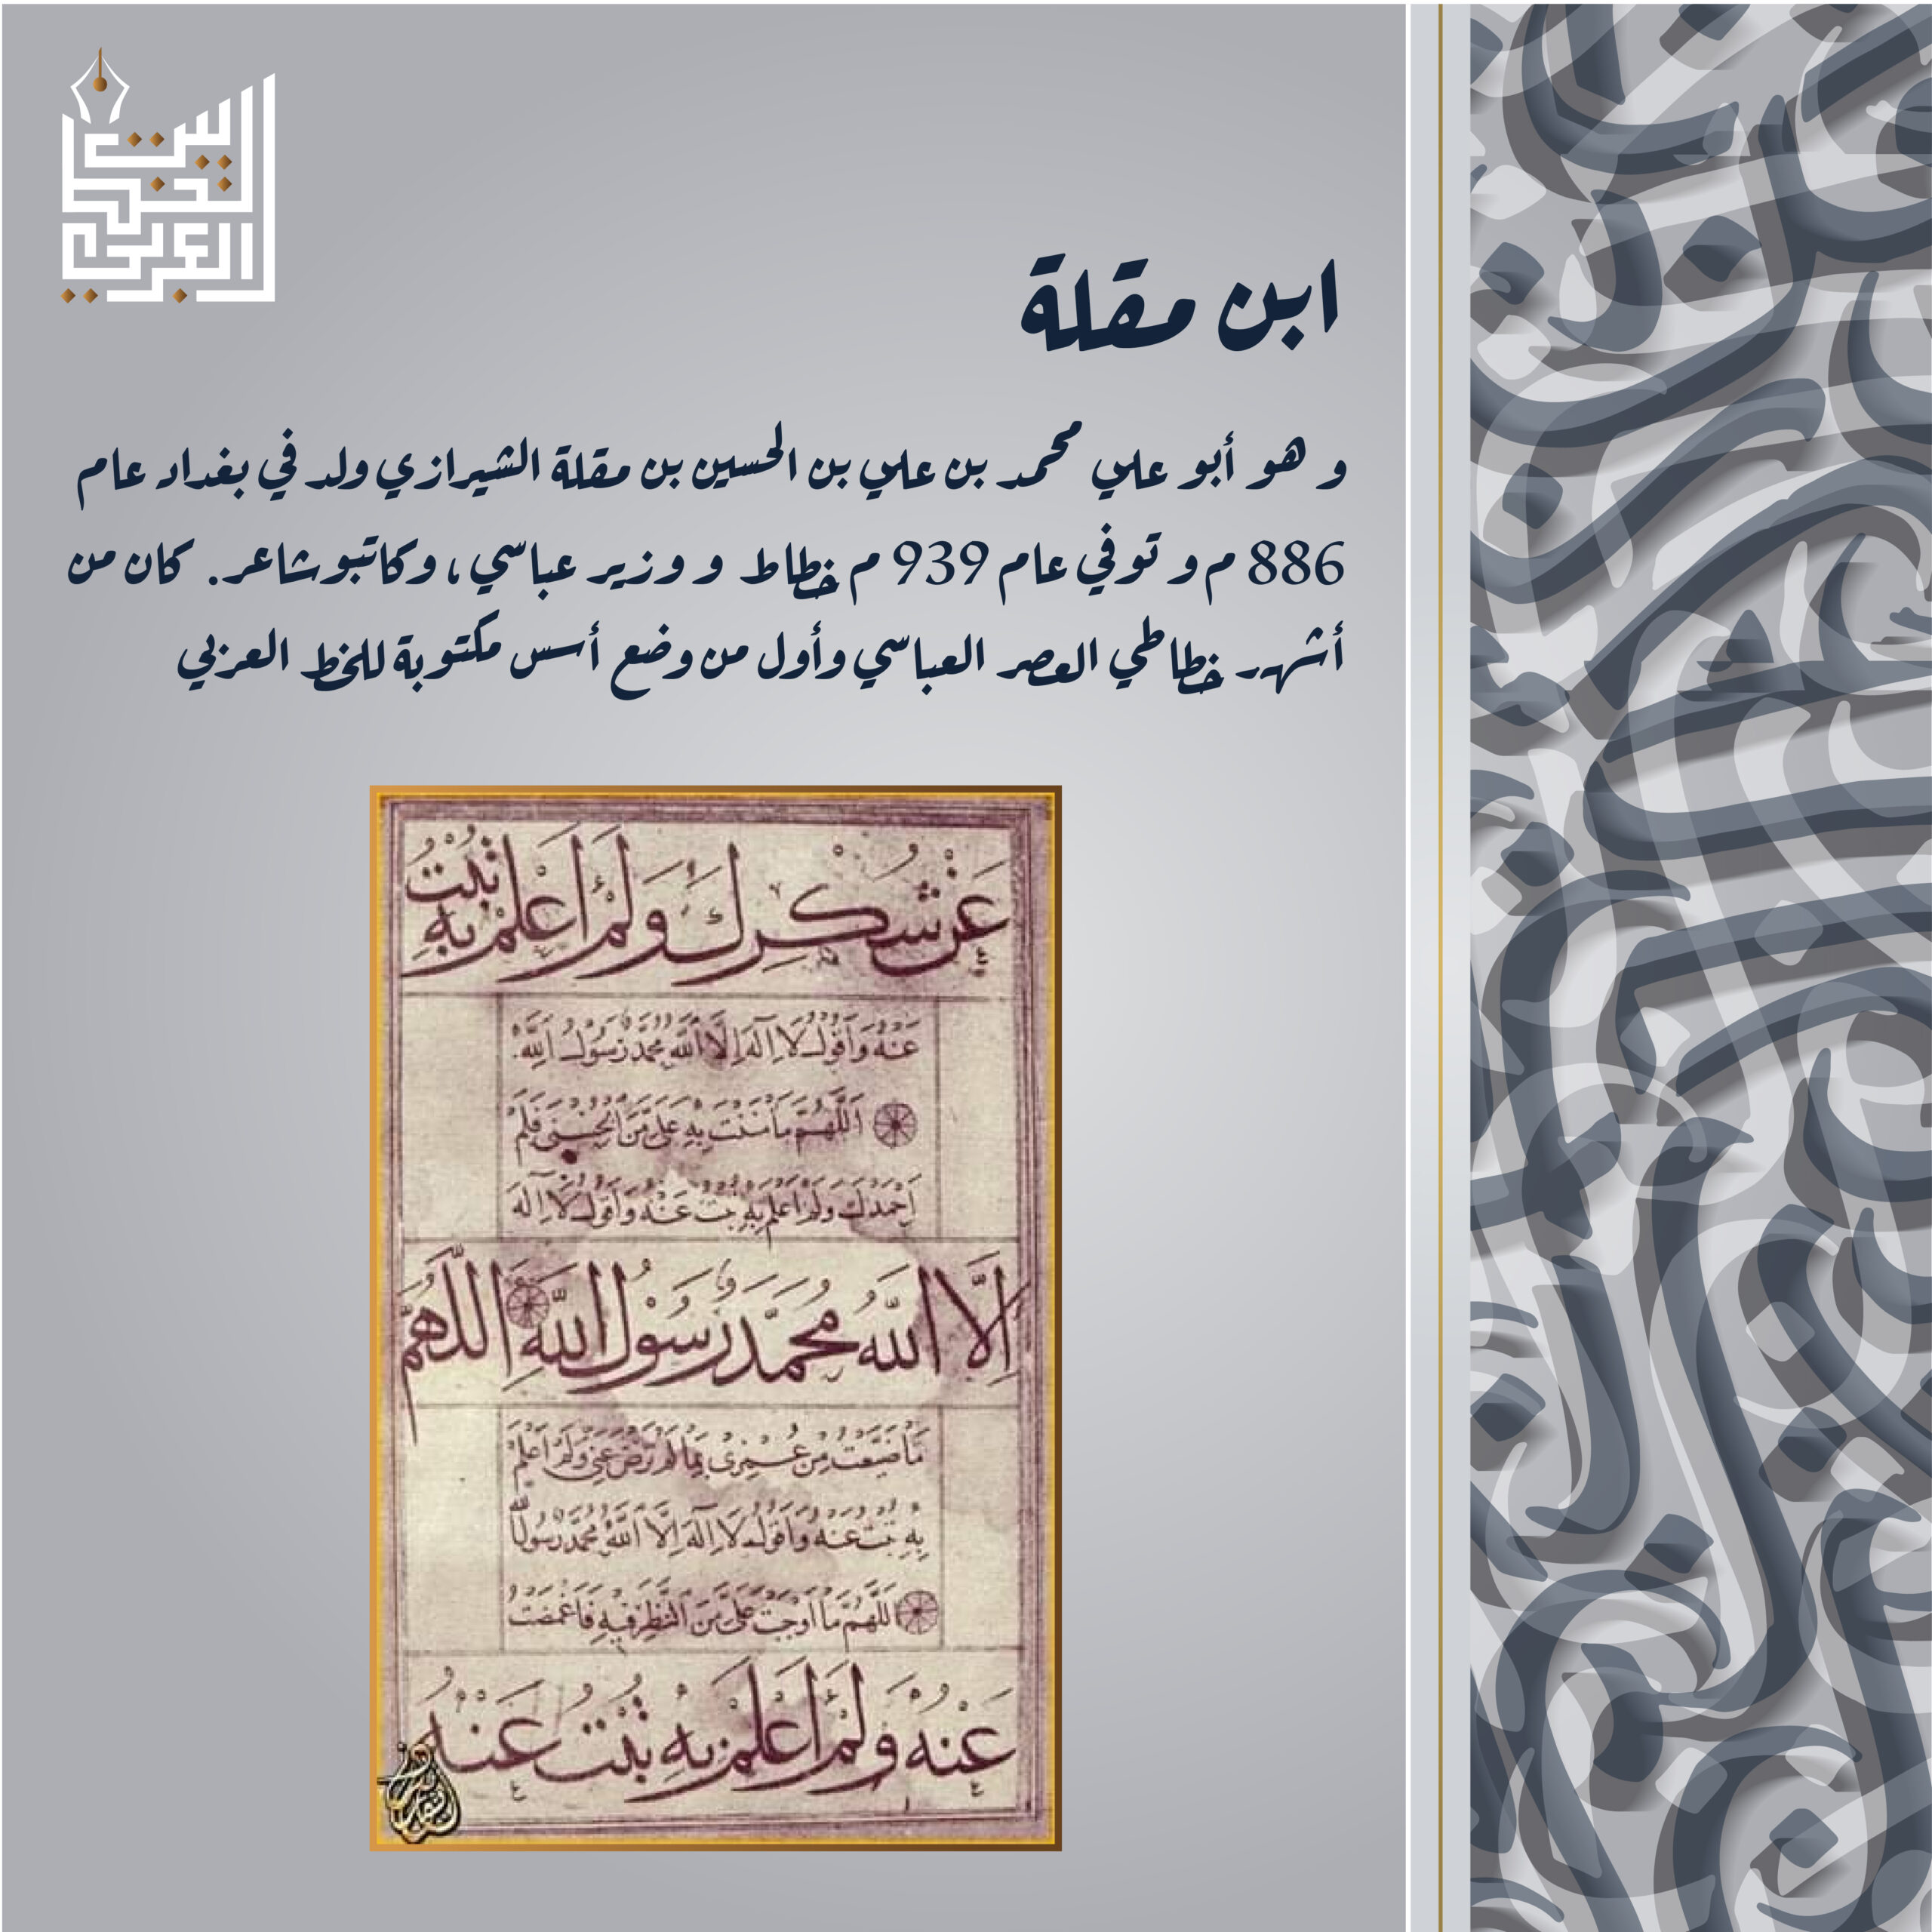 بيت
الخط
العربي
ابن مقلة
و هو أبو علي محمد بن علي بن الحسين بن مقلة الشيرازي ولد في بغداد عام
886 م و توفي عام 939 م خطاط و وزير عباسي، وكاتبوشاعر. كان من
أشهر خطاطي العصر العباسي وأول من وضع أسس مكتوبة للخط العربي
عَنْ شُكْرِكَ وَلَمْ اَعْلَمْ بِهِ تُبْتُ
عَنْهُ وَاَقُولُ لَا اِلٰهَ اِلَّا اللّٰهُ مُحَمَّدٌ رَسُولُ اللّٰهِ
اَللّٰهُمَّ مَا مَنَنْتَ بِهِ عَلَيَّ مِنَ الْحُسْنٰى فَلَمْ
اَحْمَدْكَ وَلَمْ اَعْلَمْ بِهِ تُبْتُ عَنْهُ وَاَقُولُ لَا اِلٰهَ
اِلَّا اللّٰهُ مُحَمَّدٌ رَسُولُ اللّٰهِ اَللّٰهُمَّ
مَا ضَيَّعْتُ مِنْ عُمْرِى بِمَا لَمْ تَرْضَ عَنِّى وَلَمْ اَعْلَمْ
بِهِ تُبْتُ عَنْهُ وَاَقُولُ لَا اِلٰهَ اِلَّا اللّٰهُ مُحَمَّدٌ رَسُولُ اللّٰهِ
اَللّٰهُمَّ مَا اَوْجَبْتَ عَلَيَّ مِنَ النَّظَرِ فِيهِ فَاَغْمَضْتُ
عَنْهُ وَلَمْ اَعْلَمْ بِهِ تُبْتُ عَنْهُ